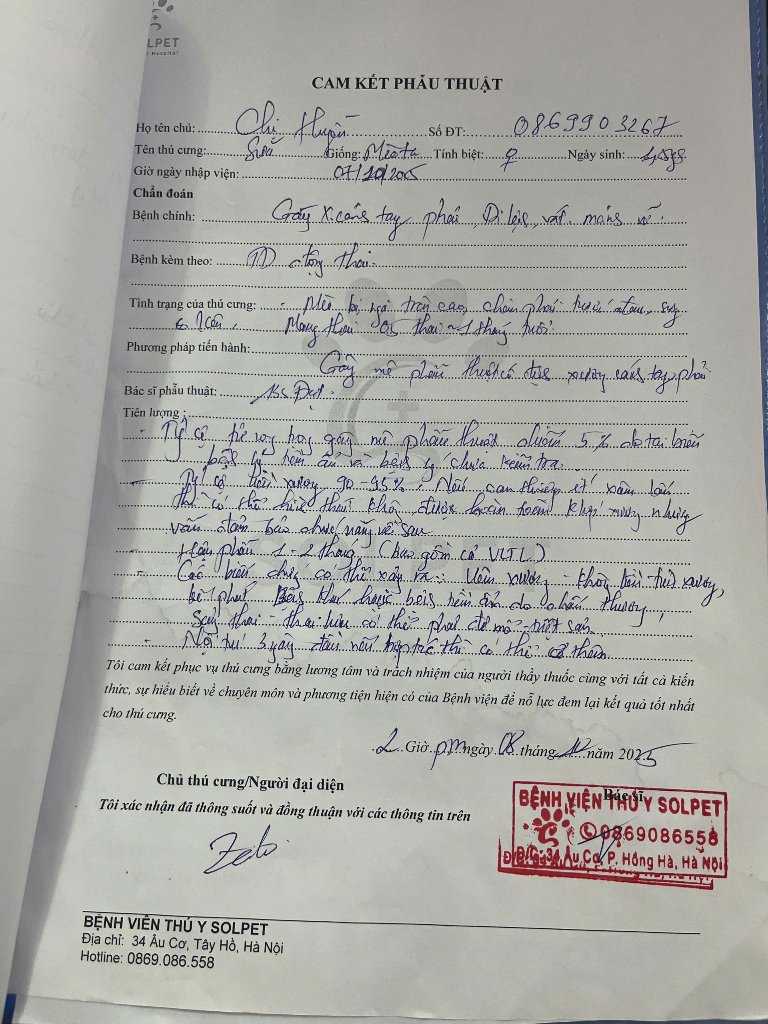 SOLPET
Hospital
CAM KẾT PHẪU THUẬT
Họ tên chủ: Chị Huyền Số ĐT: 0869903267
Tên thú cưng: Sữa Giống: Mèo ta Tính biệt: ♀ Ngày sinh:
Giờ ngày nhập viện: 07/10/2025
Chẩn đoán
Bệnh chính: Gãy X. cẳng tay phải, Di lệch, vát, mảnh vỡ.
Bệnh kèm theo: TD động thai.
Tình trạng của thú cưng: - Mèo bị ngã trên cao, chân phải trước đau, sưng
Mang thai 05 thai ~ 1 tháng tuổi
Phương pháp tiến hành:
Gây mê phẫu thuật cố định xương cẳng tay phải
Bác sĩ phẫu thuật: Bs Đạt
Tiên lượng:
- Tỷ lệ tử vong trong gây mê phẫu thuật dưới 5% do tai biến
bệnh lý tiềm ẩn và bệnh lý chưa kiểm tra.
- Tỷ lệ liền xương 90-95%. Nếu can thiệp ít xâm lấn
thì có thể hình thái không được hoàn toàn khớp xương nhưng
vẫn đảm bảo chức năng về sau
- Hậu phẫu 1-2 tháng (bao gồm cả VLTL)
- Các biến chứng có thể xảy ra: Viêm xương - không liền xương,
kế phát bệnh hoặc bệnh tiềm ẩn do chấn thương,
Sảy thai - thai lưu có thể phải đẻ mổ - triệt sản.
- Nội trú 3 ngày đầu nếu hợp tác thì có thể về thêm
Tôi cam kết phục vụ thú cưng bằng lương tâm và trách nhiệm của người thầy thuốc cùng với tất cả kiến
thức, sự hiểu biết về chuyên môn và phương tiện hiện có của Bệnh viện để nỗ lực đem lại kết quả tốt nhất
cho thú cưng.
2 Giờ pm ngày 08 tháng 10 năm 2025
Chủ thú cưng/Người đại diện Bác sĩ
Tôi xác nhận đã thông suốt và đồng thuận với các thông tin trên
BỆNH VIỆN THÚ Y SOLPET
0869086558
Đ/C: 34 Âu Cơ, P. Hồng Hà, Hà Nội
BỆNH VIỆN THÚ Y SOLPET
Địa chỉ: 34 Âu Cơ, Tây Hồ, Hà Nội
Hotline: 0869.086.558